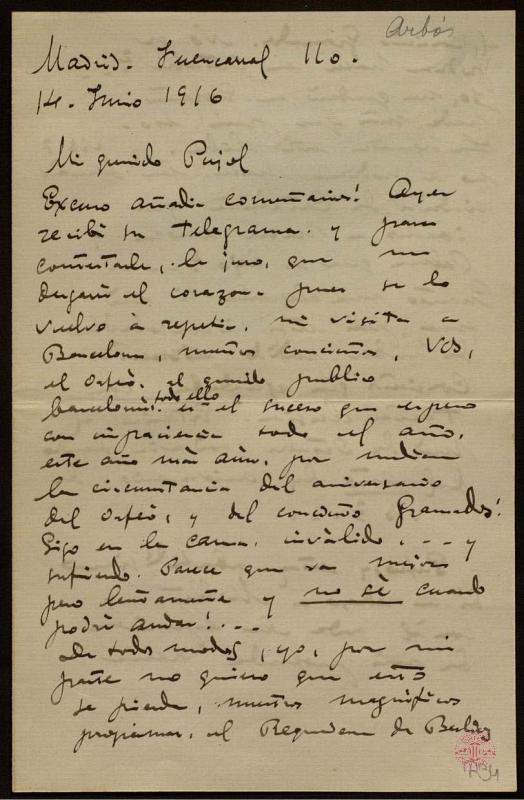 Arbós
Madrid. Fuencarral 110.
14. Junio 1916
Mi querido Pujol
Excuso añadir comentarios! Ayer
recibí su telegrama. y para
contestarle, le juro, que me
desgarré el corazon. pues se lo
vuelvo à repetir, mi visita a
Barcelona, nuestros conciertos, VdS,
el Orfeó, el querido publico
barcelonés. todo ello es el suceso que espero
con impaciencia todo el año,
este año más aún, por mediar
la circunstancia del aniversario
del Orfeó, y del concierto Granados!
Sigo en la cama. inválido, --- y
sufriendo. Parece que va mejor
pero lentamente y no sè cuando
podré andar! ...
De todos modos, yo, por mi
parte no quiero que esto
se pierda, nuestros magníficos
programas, el Requiem de Berlioz